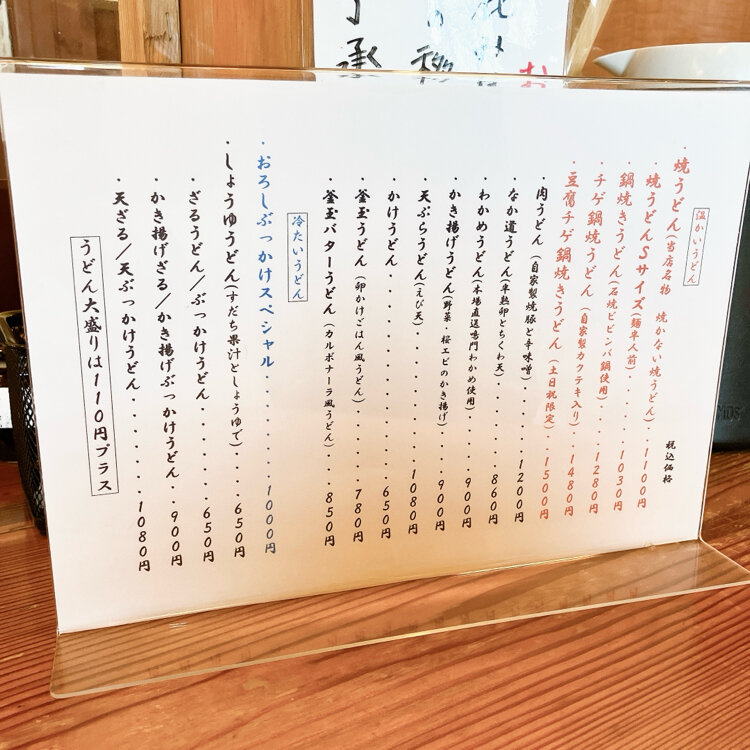 温かいうどん
税込価格
・焼うどん(当店名物 焼かない焼うどん)・1100円
・焼うどんSサイズ(麺半人前)・・・1030円
・鍋焼きうどん(石焼ビビンバ鍋使用)・・・1280円
・チゲ鍋焼うどん(自家製カクテキ入り)・・1480円
・豆腐チゲ鍋焼きうどん(土日祝限定)・・1500円
・肉うどん(自家製焼豚と辛味噌)・・・1200円
・なか道うどん(半熟卵とちくわ天)・・・860円
・わかめうどん(本場直送鳴門わかめ使用)・・・900円
・かき揚げうどん(野菜・桜エビのかき揚げ)・・900円
・天ぷらうどん(えび天)・・・・・・1080円
・かけうどん・・・・・・・・・・650円
・釜玉うどん(卵かけごはん風うどん)・・・・780円
・釜玉バターうどん(カルボナーラ風うどん)・・850円
冷たいうどん
・おろしぶっかけスペシャル・・・・・・1000円
・しょうゆうどん(すだち果汁としょうゆで)・・・650円
・ざるうどん/ぶっかけうどん・・・・・650円
・かき揚げざる/かき揚げぶっかけうどん・・900円
・天ざる/天ぶっかけうどん・・・・・1080円
うどん大盛りは110円プラス